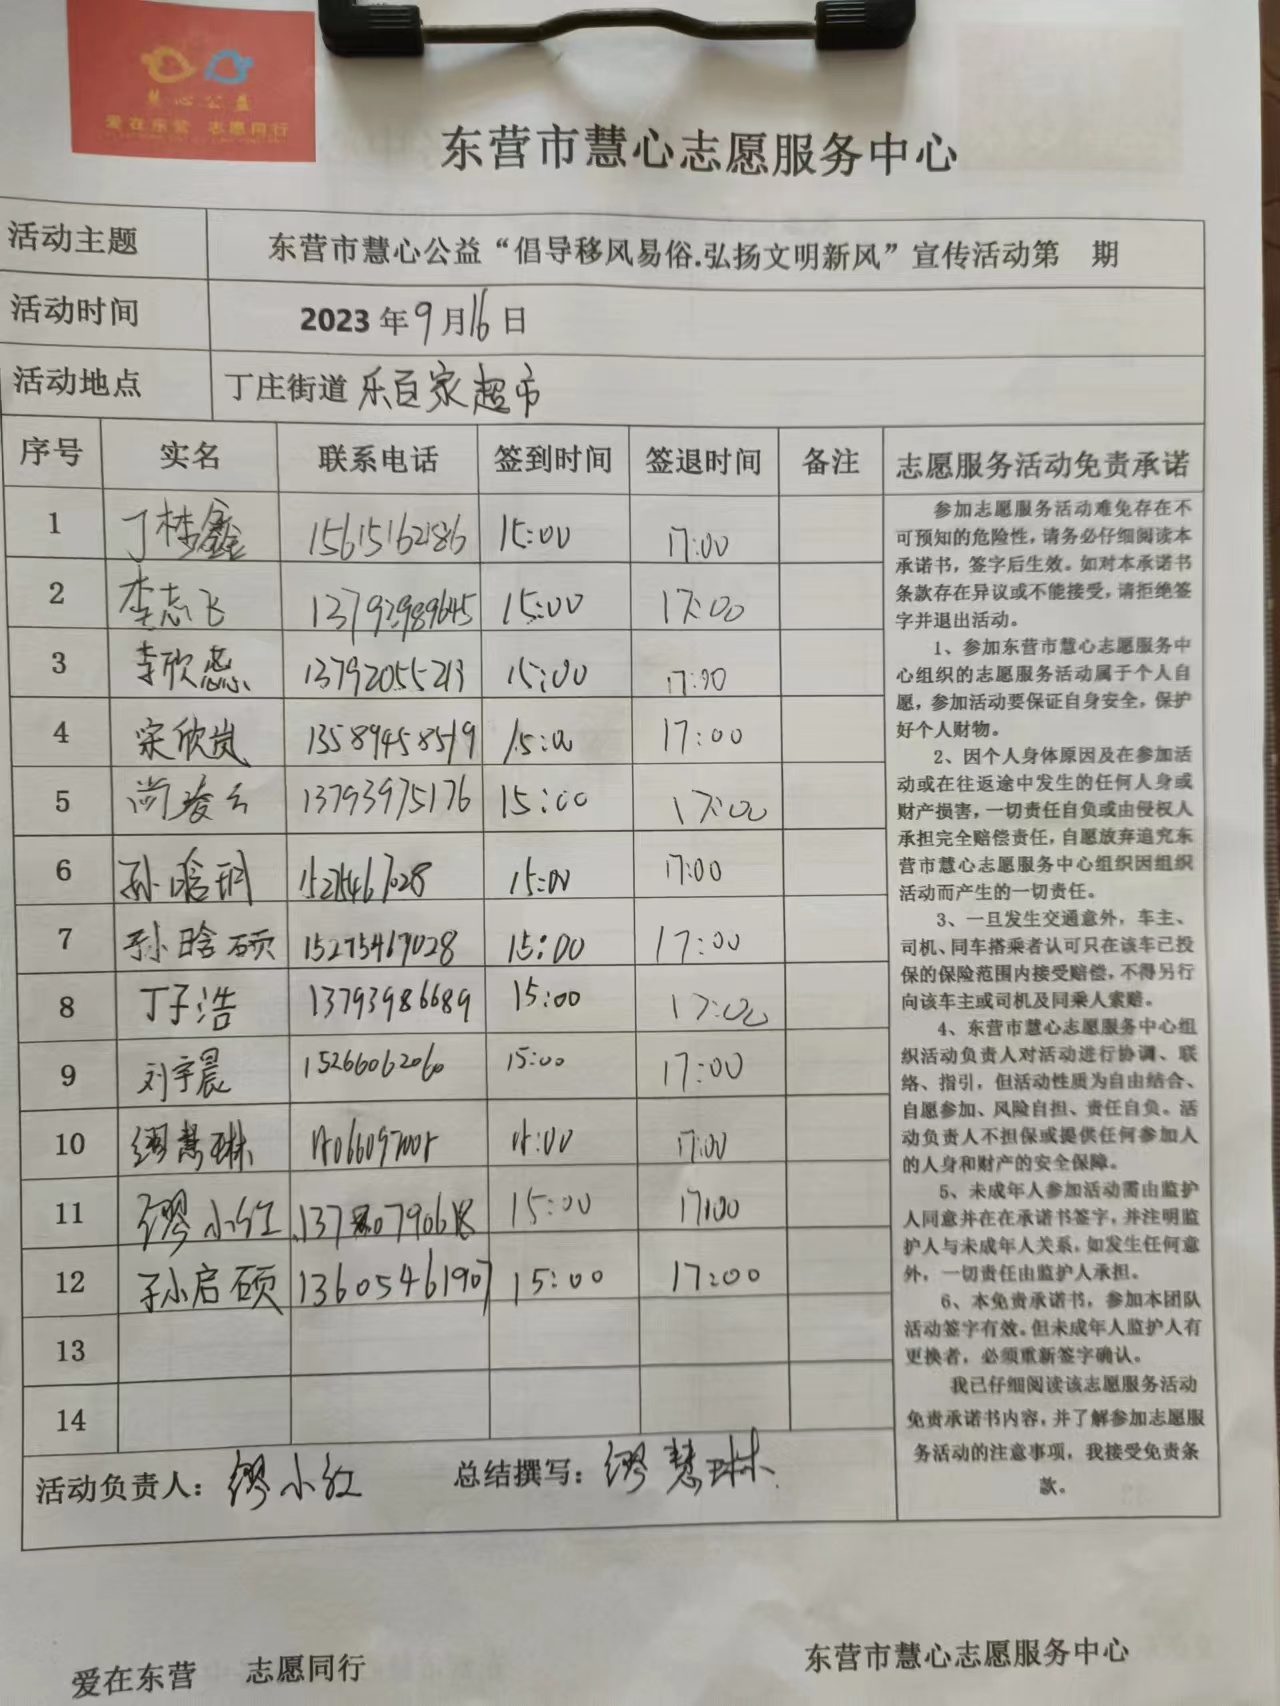 慧心公益
爱在东营 志愿同行
东营市慧心志愿服务中心
活动主题 东营市慧心公益“倡导移风易俗.弘扬文明新风”宣传活动第 期
活动时间 2023年9月16日
活动地点 丁庄街道 乐百家超市
序号 实名 联系电话 签到时间 签退时间 备注 志愿服务活动免责承诺
1 丁梦鑫 15615162586 15:00 17:00
2 李志飞 13793989645 15:00 17:00
3 李欣蕊 13792055213 15:00 17:00
4 宋欣岚 13589458519 15:00 17:00
5 尚凌云 13793975176 15:00 17:00
6 孙晗玥 15275467028 15:00 17:00
7 孙晗硕 15275467028 15:00 17:00
8 丁子浩 13793986689 15:00 17:00
9 刘宇晨 15266062060 15:00 17:00
10 缪慧琳 15:00 17:00
11 缪小红 15:00 17:00
12 孙启硕 13605461907 15:00 17:00
13
14
参加志愿服务活动难免存在不
可预知的危险性，请务必仔细阅读本
承诺书，签字后生效。如对本承诺书
条款存在异议或不能接受，请拒绝签
字并退出活动。
1、参加东营市慧心志愿服务中
心组织的志愿服务活动属于个人自
愿，参加活动要保证自身安全，保护
好个人财物。
2、因个人身体原因及在参加活
动或在往返途中发生的任何人身或
财产损害，一切责任自负或由侵权人
承担完全赔偿责任，自愿放弃追究东
营市慧心志愿服务中心组织因组织
活动而产生的一切责任。
3、一旦发生交通意外，车主、
司机、同车搭乘者认可只在该车已投
保的保险范围内接受赔偿，不得另行
向该车主或司机及同乘人索赔。
4、东营市慧心志愿服务中心组
织活动负责人对活动进行协调、联
络、指引，但活动性质为自由结合、
自愿参加、风险自担、责任自负。活
动负责人不担保或提供任何参加人
的人身和财产的安全保障。
5、未成年人参加活动需由监护
人同意并在在承诺书签字，并注明监
护人与未成年人关系，如发生任何意
外，一切责任由监护人承担。
6、本免责承诺书，参加本团队
活动签字有效。但未成年人监护人有
更换者，必须重新签字确认。
我已仔细阅读该志愿服务活动
免责承诺书内容，并了解参加志愿服
务活动的注意事项，我接受免责条
款。
活动负责人：缪小红 总结撰写：缪慧琳
爱在东营 志愿同行 东营市慧心志愿服务中心